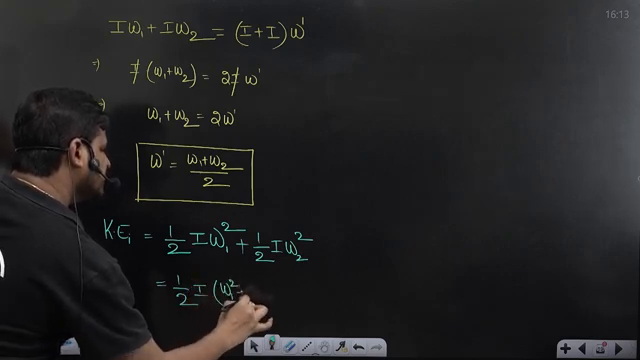 16:13
Iω₁ + Iω₂ = (I + I)ω'
⇒ I(ω₁+ω₂) = 2Iω'
ω₁ + ω₂ = 2ω'
ω' = (ω₁+ω₂)/2
K.Eᵢ = 1/2 Iω₁² + 1/2 Iω₂²
= 1/2 I (ω₁²